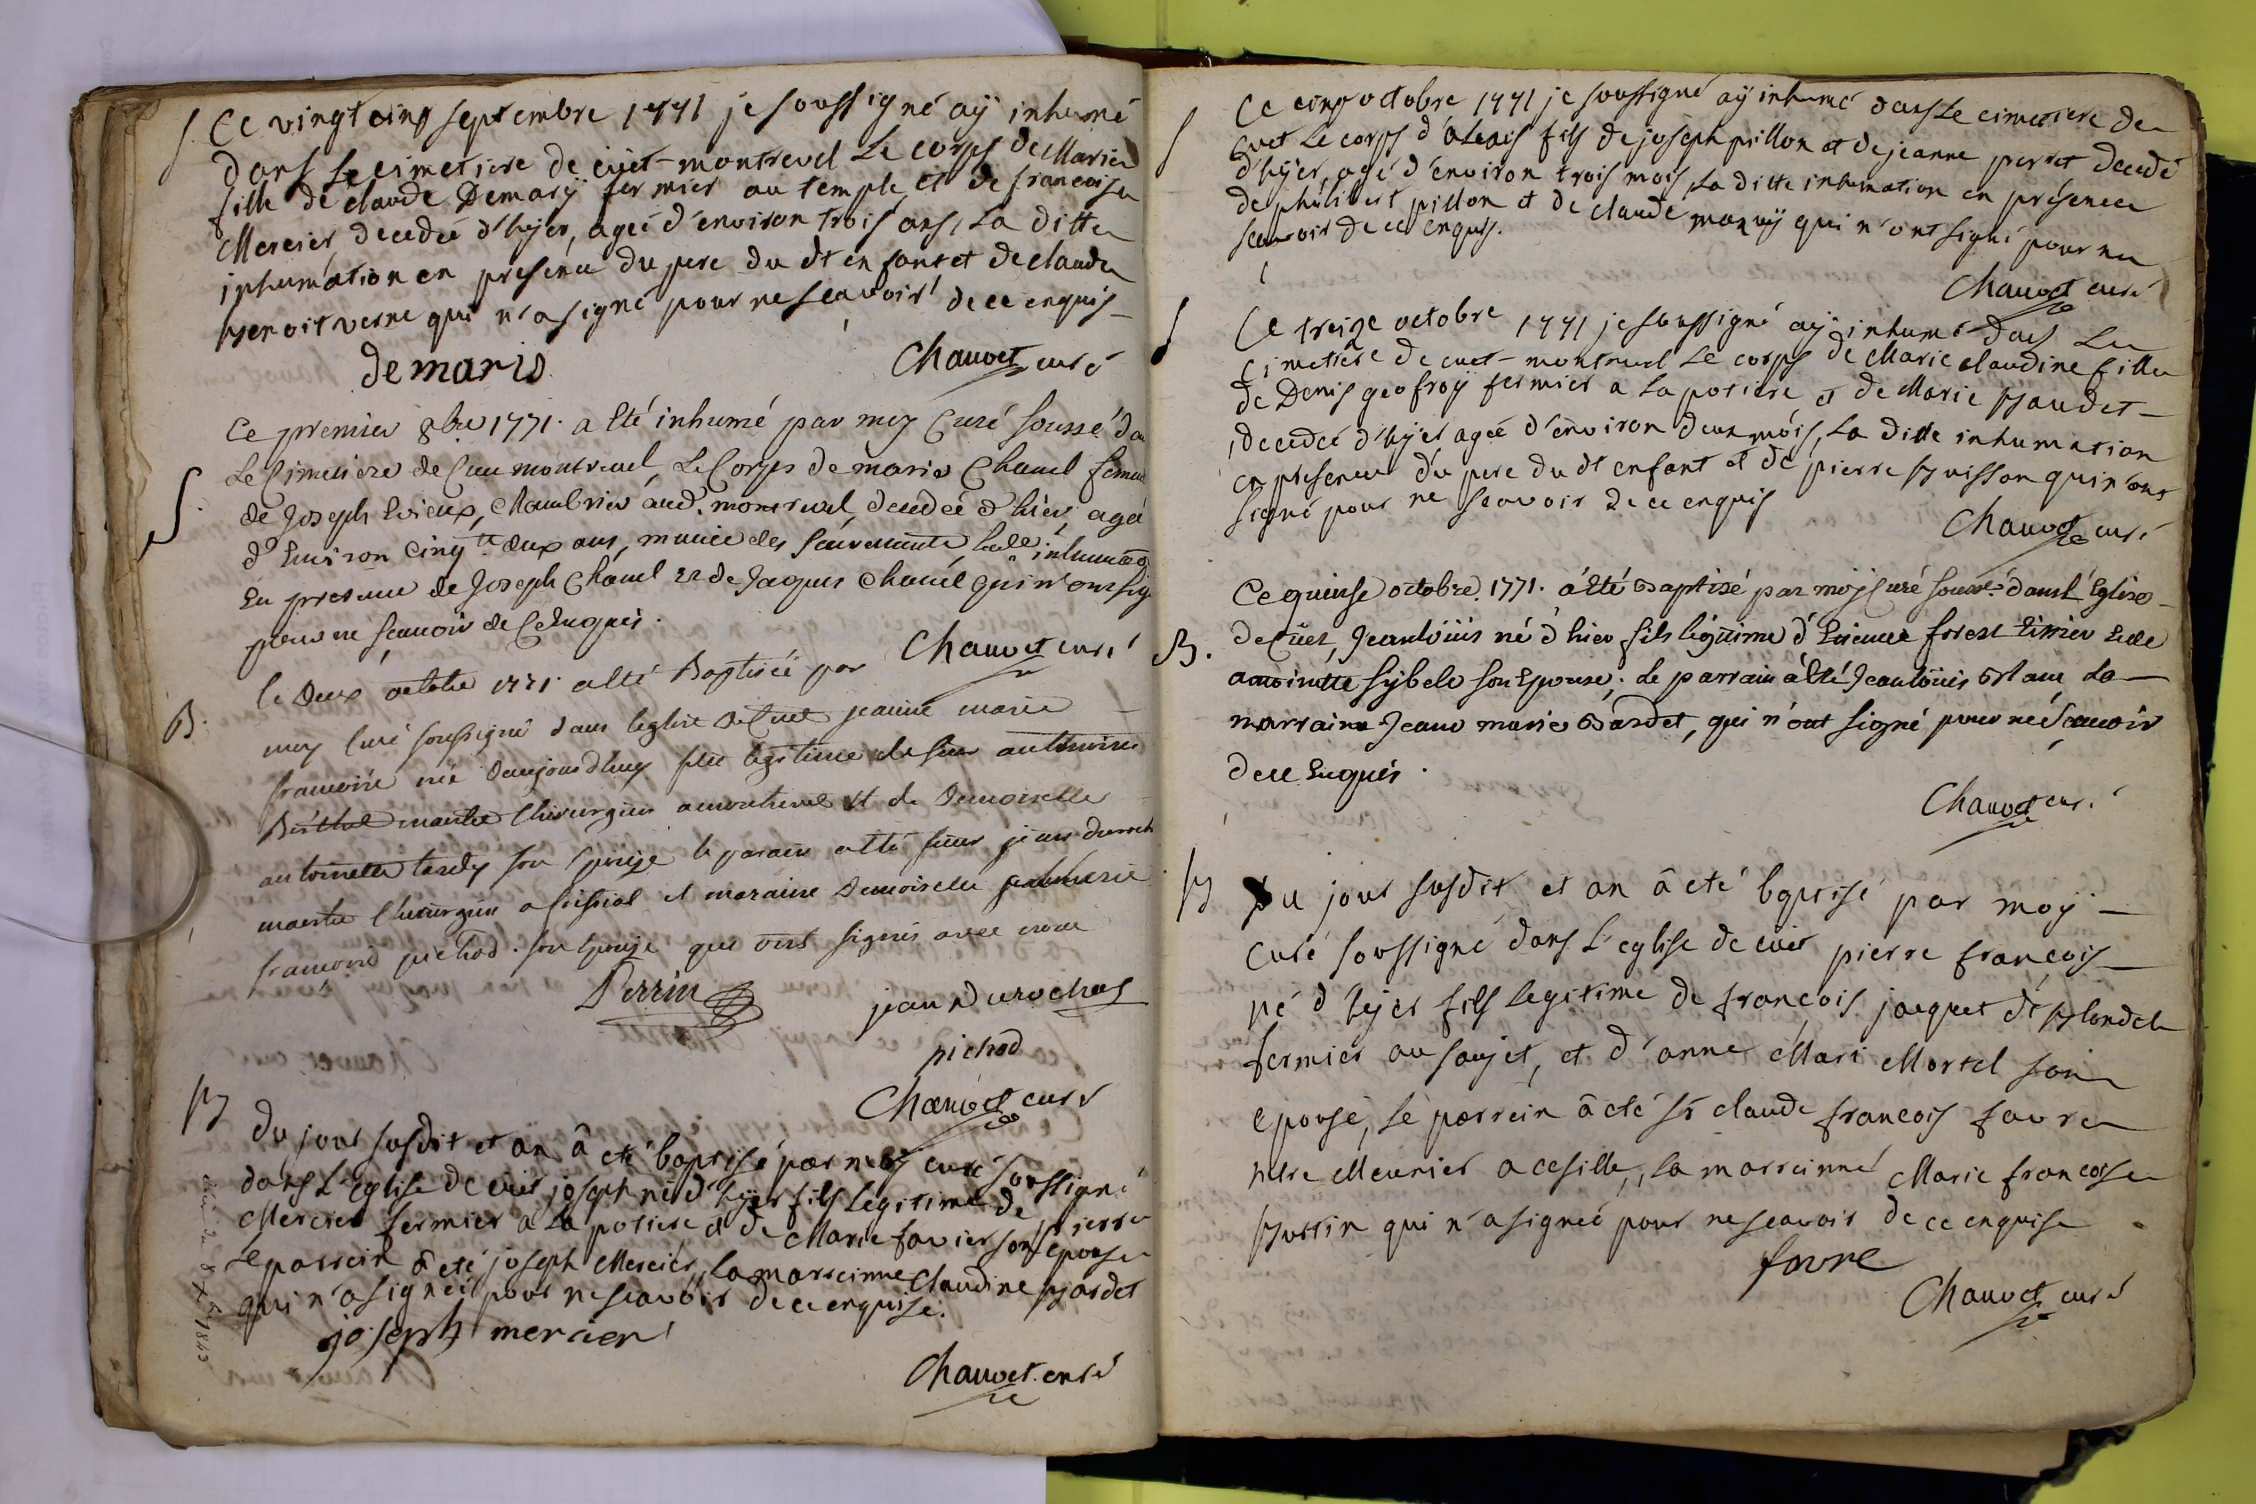 S Ce vingt cinq septembre 1771 je soussigné aÿ inhumé
dans le cimetiere de cüet-montreuel Le corps de Marie
fille de claude Demarÿ fermier au temple et de francoise
Mercier, decedée d'hÿer, ageé d'environ trois ans, La ditte
inhumation en presence du pere du dt enfant et de claude
benoit verne qui n'a signé pour ne scavoir de ce enquis
demaris Chauvet curé
Ce premier 8bre 1771. a Eté inhumé par moy Curé soussé da
Le Cimetiere de Cuet montreuel, Le Corps de marie Chanel femme
S. de Joseph Evieux, Manbrier aud. montreuel, decedée d'hier, agée
d'Environ Cinqte deux ans, munie des Sacrements, lade inhumaõn
En presence de Joseph Chanel et de Jaques Chanel qui n'ont sig
pour ne scauoir de Ce Enquis.
Chauvet curé
B. le deux octobre 1771. a Eté Baptisée par
moy Curé soussigné dans l'eglise de Cuet jeanne marie
francoise née d'aujourdhuy fille legitime de sieur anthoine
maitre Chirurgien a montreuel et de demoiselle
antoinette tardy son Epouse le parain a été sieur jean duroch
maitre Chirurgien a et maraine Demoiselle
francoise pichod son Epouse qui ont signés avec nous
Perrin jean Durochas
pichod
Chauvet curé
B Du jour susdit et an â eté baptisé par moÿ curé soussigné
dans L'Eglise de cüet joseph né d'hÿer fils legitime de pierre
Mercier fermier a La potiere et de Marie favier son Epouse
Le parrein â eté joseph Mercier, La marreinne Claudine bardet
qui n'a signeé pour ne scavoir de ce enquise.
joseph mercier
Chauvet curé
S Ce cinq octobre 1771 je soussigné aÿ inhumé dans Le cimetiere de
cuet Le corps d'alexis fils de joseph pillon et de jeanne perret decedé
d'hÿer, agé d'environ trois mois, La ditte inhumation en présence
de philibert pillon et de claude qui n'ont signé pour ne
scavoir de ce enquis.
Chauvet curé
S Ce treize octobre 1771 je soussigné aÿ inhumé dans Le
cimetiere de cuet-montreuel Le corps de Marie claudine fille
de Denis geofroÿ fermier a La potiere et de Marie baudet
decedeé d'hÿer ageé d'environ deux mois, La ditte inhumation
en presence du pere du dt enfant et de pierre buisson qui n'ont
signé pour ne scavoir de ce enquis
Chauvet curé
Ce quinse octobre 1771. a Eté Baptisé par moy Curé soussé dans L'Eglise
B. de Cuet, Jean loüis né d'hier fils légitime d'Etienne forest tissier et de
antoinette Sybele son Epouse; Le parrain a Eté Jean loüis La
marraine Jeane marie Bardet, qui n'ont signé pour ne scauoir
de ce Enquis.
Chauvet curé
B Du jour susdit et an â eté baptisé par moÿ
curé soussigné dans L'eglise de cuet pierre francois
né d'hÿer fils legitime de francois jacquet dt blondel
fermier au saujet, et d'anne Mari Mortel son
epouse, Le parrein â eté sr claude francois favre
mtre Meunier a cesille, La marreinne Marie francoise
buttin qui n'a signeé pour ne scavoir de ce enquise
favre
Chauvet curé